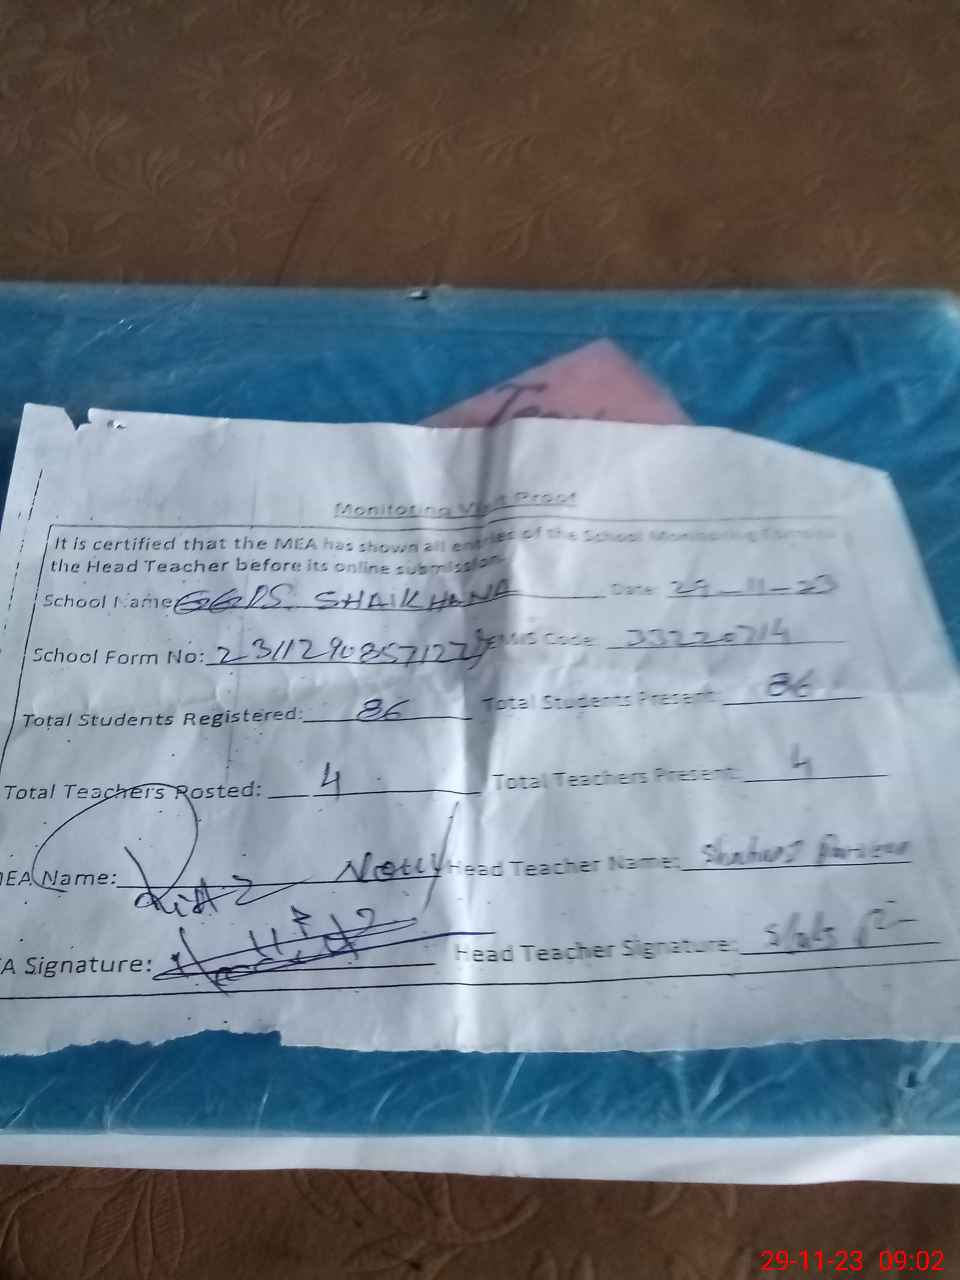 Monitoring Visit Proof
It is certified that the MEA has shown all entries of the School Monitoring Form to
the Head Teacher before its online submission.
School Name GGPS. SHAIKHANA Date: 29-11-23
School Form No: EMIS Code: 33220714
Total Students Registered: 86 Total Students Present: 86
Total Teachers Posted: 4 Total Teachers Present: 4
EA Name: Head Teacher Name:
A Signature: Head Teacher Signature:
29-11-23 09:02